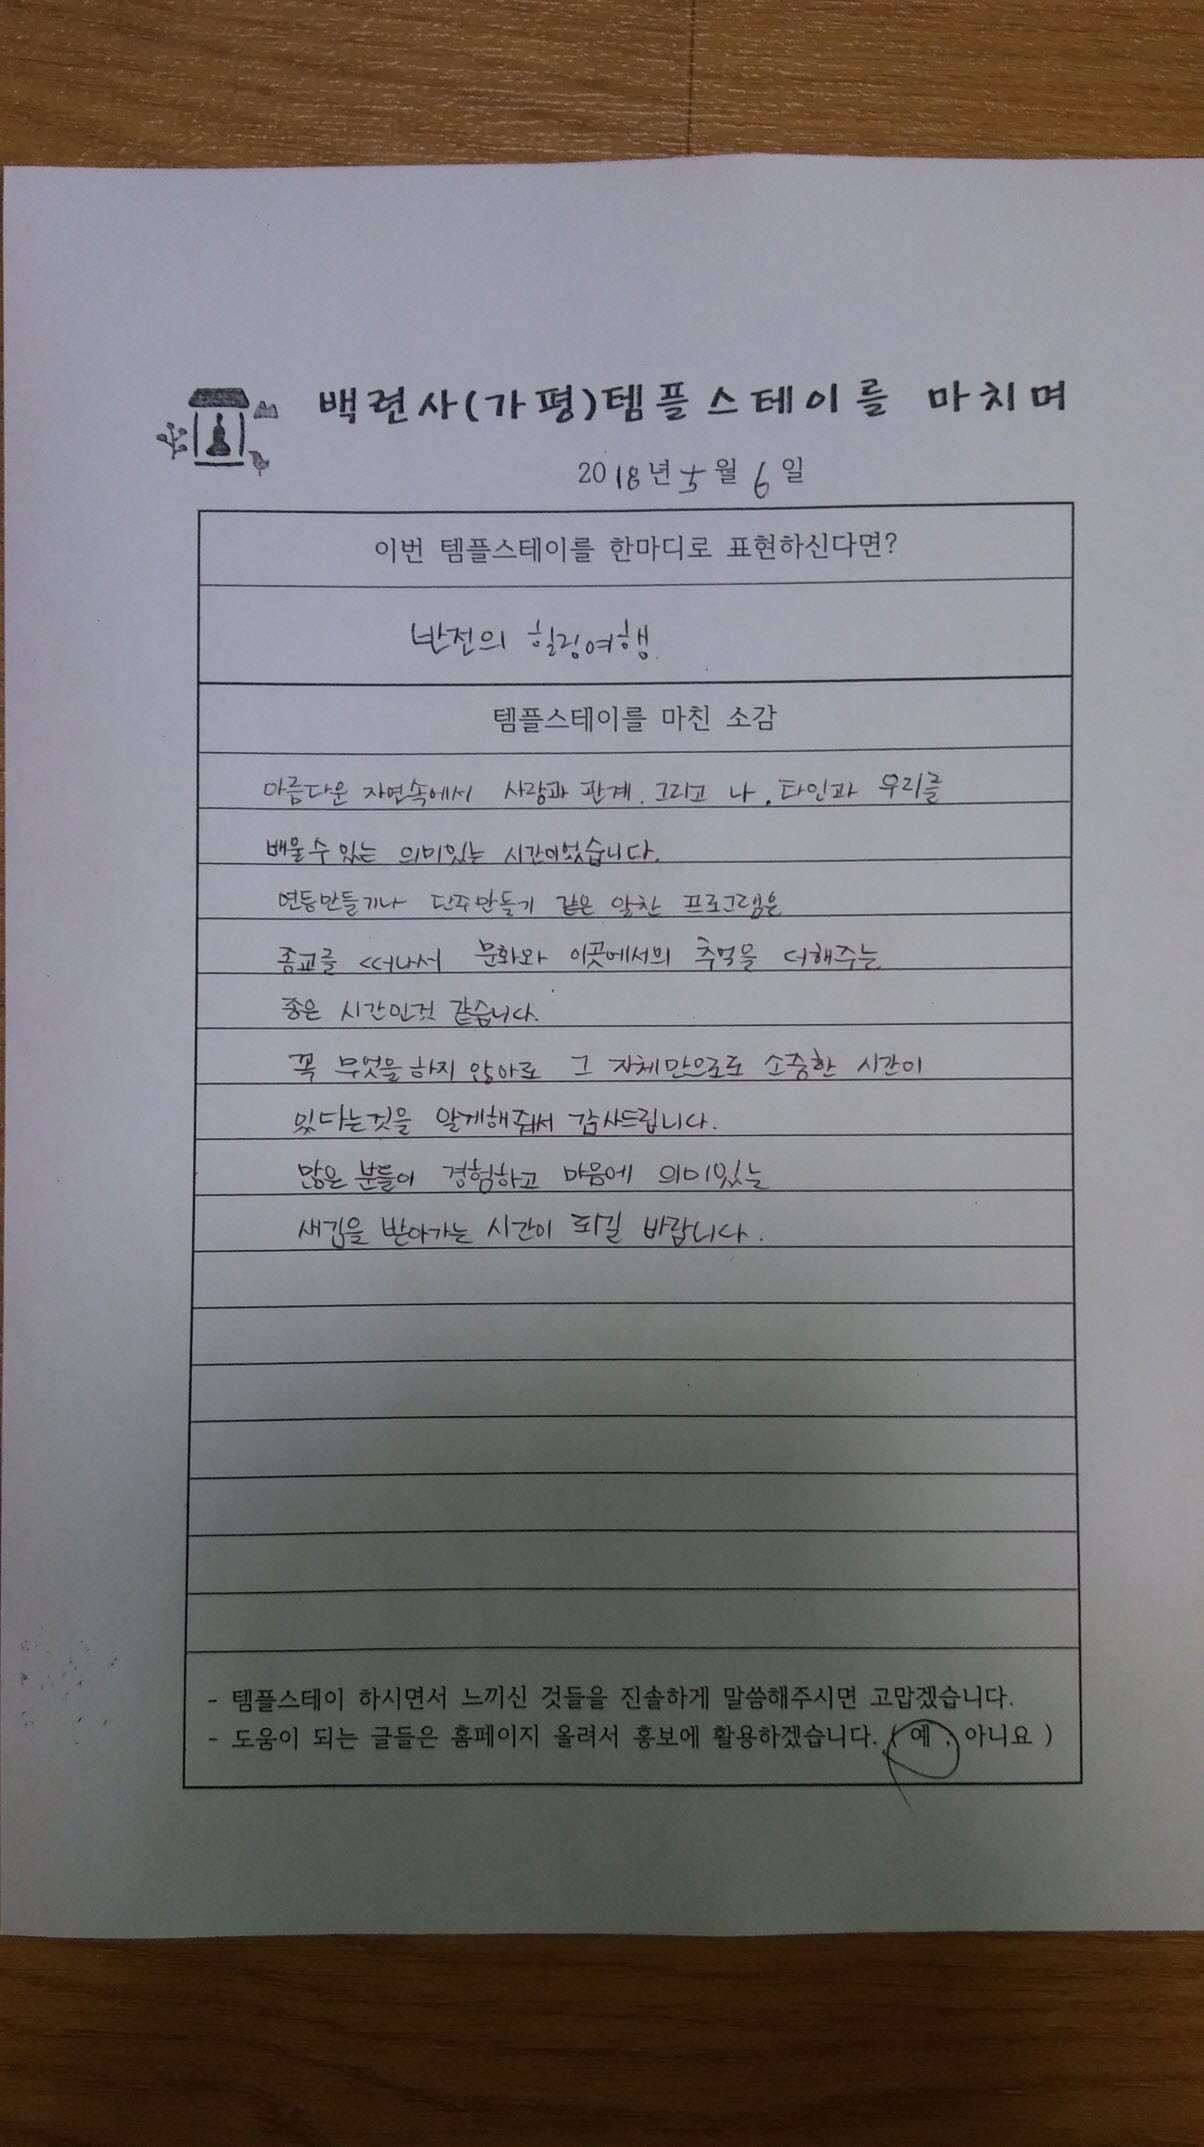 백련사(가평)템플스테이를 마치며
2018년 5월 6일
이번 템플스테이를 한마디로 표현하신다면?
반전의 힐링여행.
템플스테이를 마친 소감
아름다운 자연속에서 사랑과 관계, 그리고 나, 타인과 우리를
배울수 있는 의미있는 시간이었습니다.
연등만들기나 단주만들기 같은 알찬 프로그램은
종교를 떠나서 문화와 이곳에서의 추억을 더해주는
좋은 시간인것 같습니다.
꼭 무엇을 하지 않아도 그 자체만으로도 소중한 시간이
있다는것을 알게해줘서 감사드립니다.
많은 분들이 경험하고 마음에 의미있는
새김을 받아가는 시간이 되길 바랍니다.
- 템플스테이 하시면서 느끼신 것들을 진솔하게 말씀해주시면 고맙겠습니다.
- 도움이 되는 글들은 홈페이지 올려서 홍보에 활용하겠습니다. ( 예 . 아니요 )